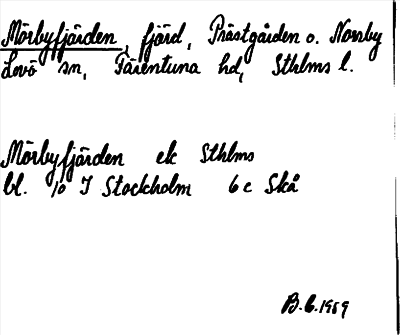 Mörbyfjärden, fjärd, Prästgården o. Norrby
Lovö sn, Färentuna hd, Sthlms l.
Mörbyfjärden ek Sthlms
bl. 10 I Stockholm 6 c Skå
B.G. 1989